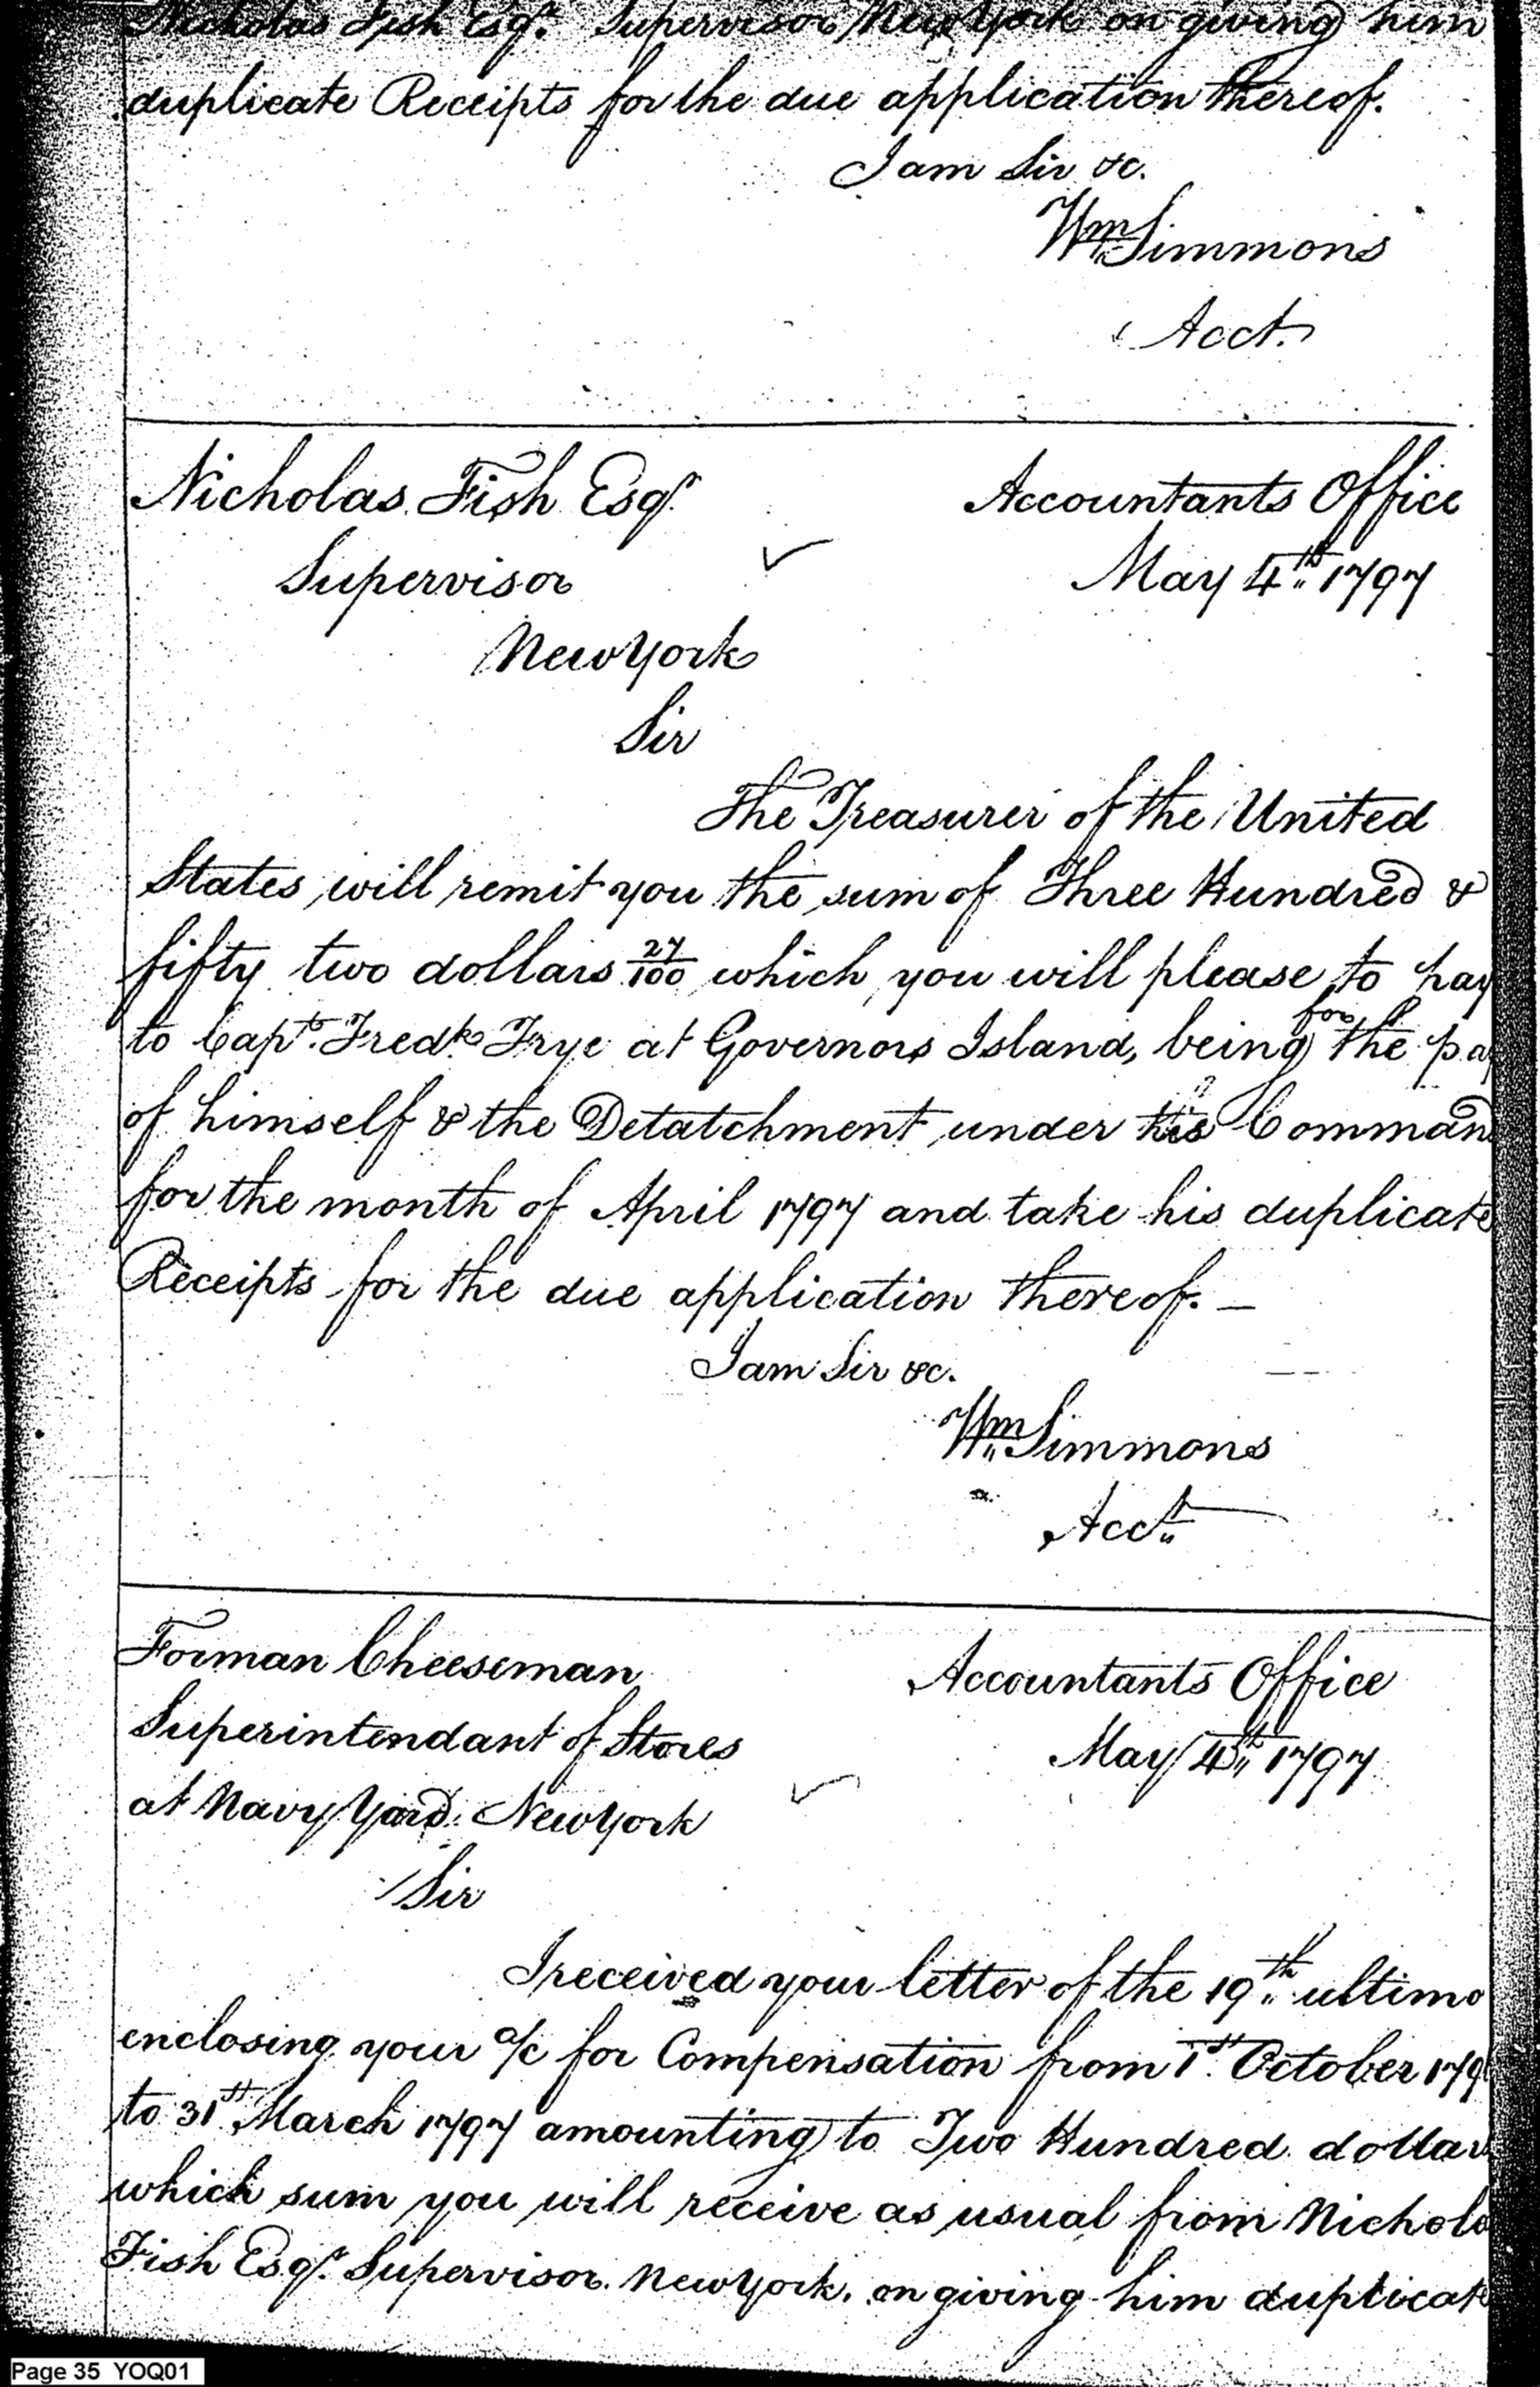 Nicholas Fish Esqr. Supervisor New York on giving him
duplicate Receipts for the due application thereof.
I am Sir &c.
Wm Simmons
Acct.
Nicholas Fish Esqr.
Accountants Office
Supervisor
May 4th 1797
New York
Sir
The Treasurer of the United
States will remit you the sum of Three Hundred &
fifty two dollars 27/100 which you will please to pay
to Capt. Fredk. Frye at Governors Island, being for the pa
of himself & the Detatchment under his Comman
for the month of April 1797 and take his duplicate
Receipts for the due application thereof. —
I am Sir &c.
Wm Simmons
Acct
Forman Cheeseman
Accountants Office
Superintendant of Stores
May 4th 1797
at Navy Yard New York
Sir
I received your letter of the 19th ultimo
enclosing your a/c for Compensation from 1st October 179
to 31st March 1797 amounting to Two Hundred dollar
which sum you will receive as usual from Nichola
Fish Esqr. Supervisor New York, on giving him duplicate
Page 35 YOQ01